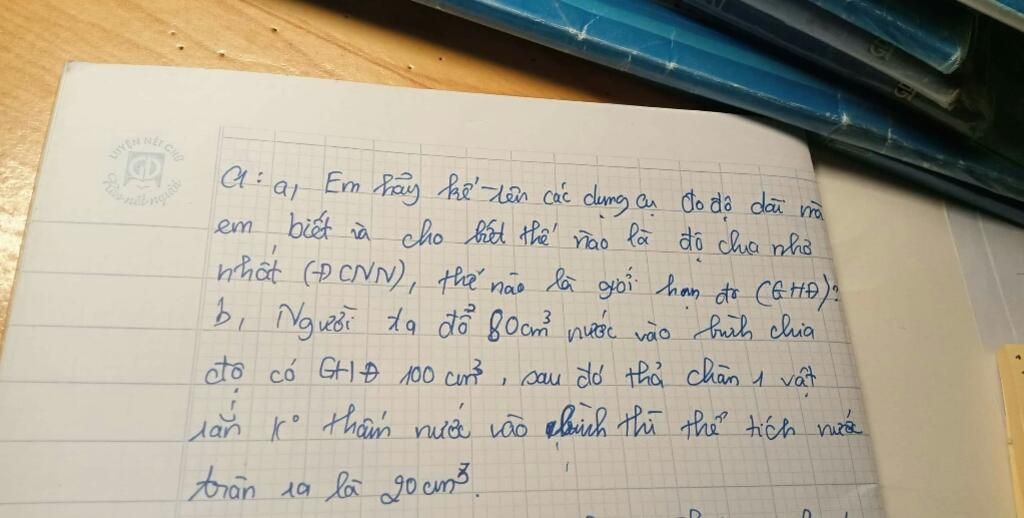 LUYỆN NÉT CHỮ
Rèn nết người
C1: a, Em hãy kể tên các dụng cụ đo độ dài mà
em biết và cho biết thế nào là độ chia nhỏ
nhất (ĐCNN), thế nào là giới hạn đo (GHĐ)?
b, Người ta đổ 80cm³ nước vào bình chia
độ có GHĐ 100 cm³, sau đó thả chìm 1 vật
rắn K° thấm nước vào bình thì thể tích nước
tràn ra là 20cm³.